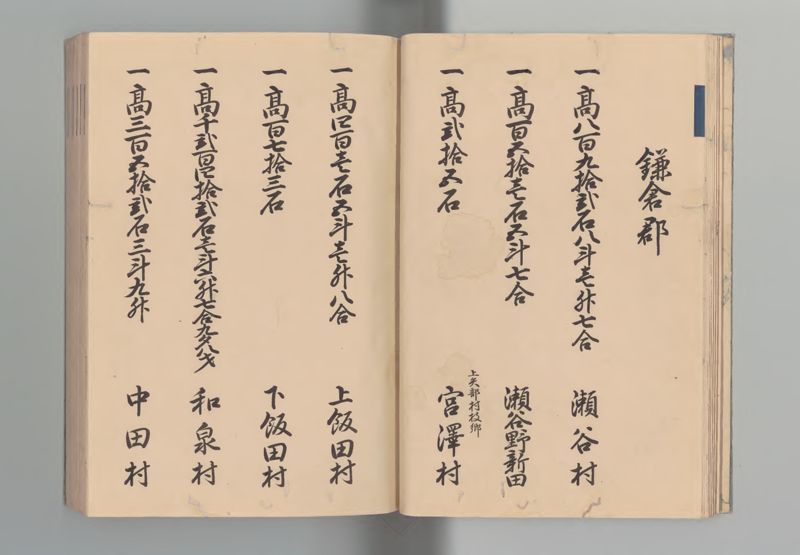 鎌倉郡
一高八百九拾弐石八斗壱升七合 瀬谷村
一高百五拾壱石五斗七合 瀬谷野新田
上矢部村枝郷
一高弐拾五石 宮澤村
一高四百壱石五斗壱升八合 上飯田村
一高百七拾三石 下飯田村
一高千弐百四拾弐石壱斗六升七合九夕八才 和泉村
一高三百五拾弐石三斗九升 中田村